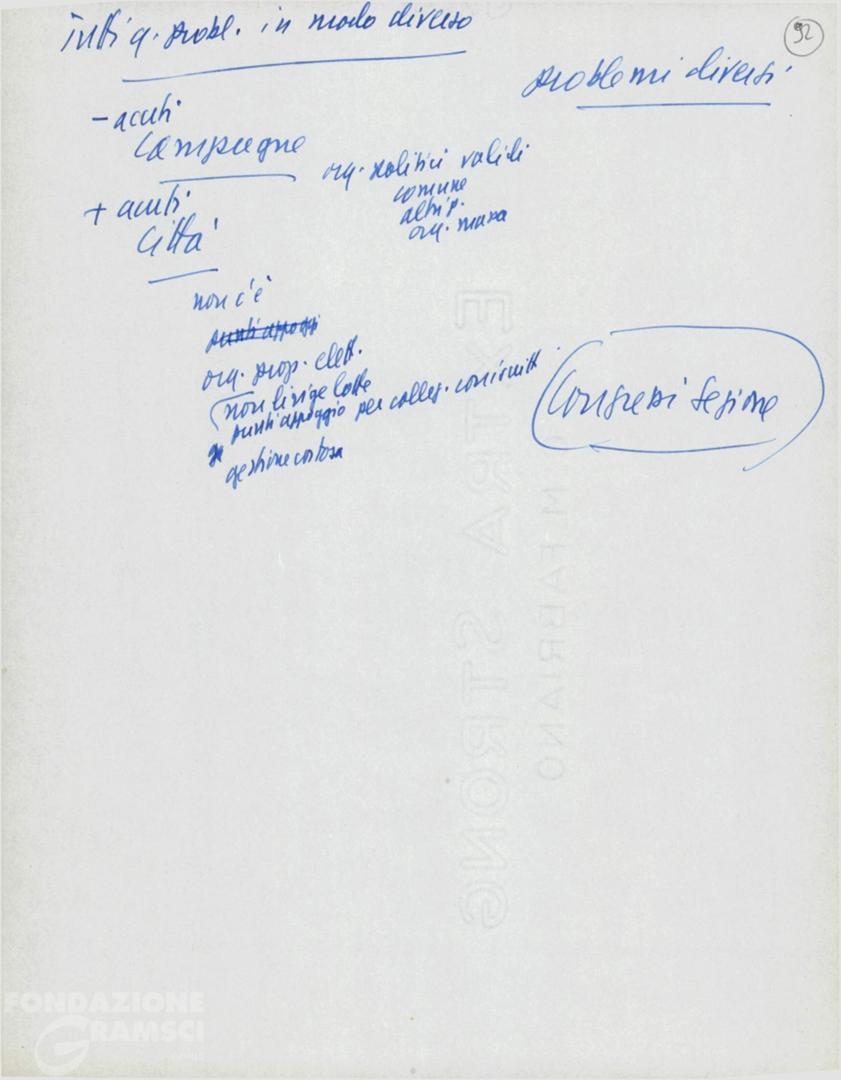 tutti q. probl. in modo diverso
92
problemi diversi
- acuti
Campagne
org. politici validi
comune
altri p.
org. massa
+ acuti
Città
non c'è
punti appoggi
org. prop. elett.
non dirige lotte
punti appoggio per colleg. con iscritti
gestione costosa
Congressi Sezione
EXTRA STRONG
M. FABRIANO
FONDAZIONE
GRAMSCI